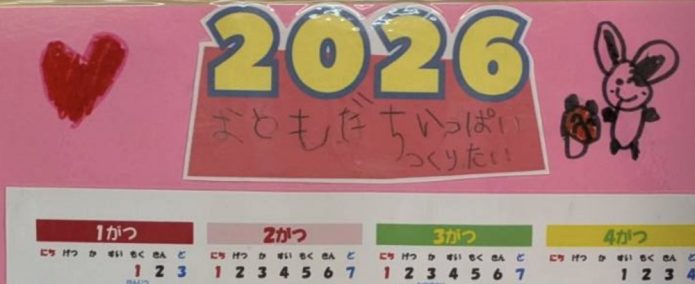 2026
おともだちいっぱい
つくりたい
1がつ 2がつ 3がつ 4がつ
にち げつ か すい もく きん ど にち げつ か すい もく きん ど にち げつ か すい もく きん ど にち げつ か すい もく きん ど
1 2 3 1 2 3 4 5 6 7 1 2 3 4 5 6 7 1 2 3 4